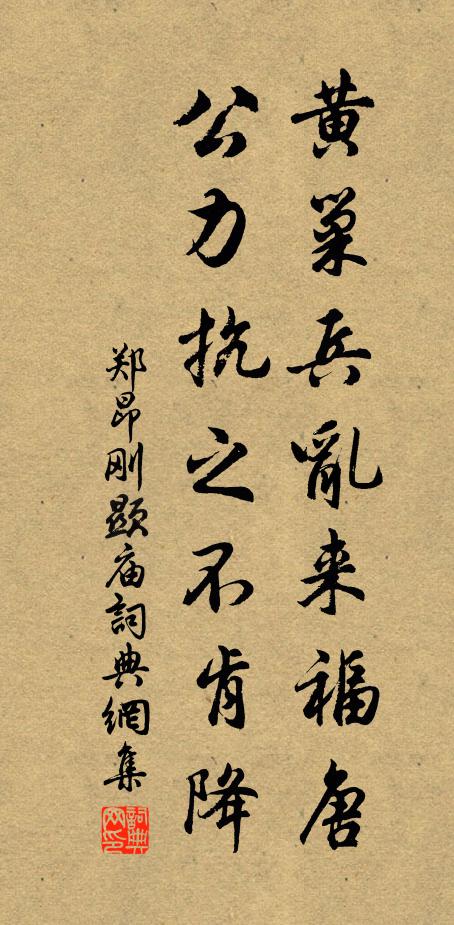 黄巢兵亂来福唐
公力抗之不肯降
郑昂刚顯庙詞典網集
詞典网印